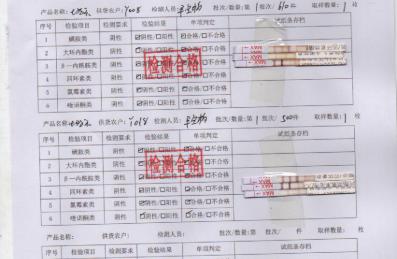 供货农户: Y008 检测人员: 批次/数量: 第1批次/610件 取样数量: 1枚
序号 检验项目 检测要求 检验结果 单项判定 试纸条存档
1 磺胺类 阴性 ☑阴性/□阳性 ☑合格/□不合格
2 大环内酯类 阴性 ☑阴性/□阳性 ☑合格/□不合格
3 β一内酰胺类 阴性 ☑阴性/□阳性 ☑合格/□不合格
4 四环素类 阴性 ☑阴性/□阳性 ☑合格/□不合格
5 氯霉素类 阴性 ☑阴性/□阳性 ☑合格/□不合格
6 喹诺酮类 阴性 ☑阴性/□阳性 ☑合格/□不合格
检测合格
MAX
产品名称: 供货农户: Y018 检测人员: 批次/数量: 第1批次/500件 取样数量: 1枚
序号 检验项目 检测要求 检验结果 单项判定 试纸条存档
1 磺胺类 阴性 ☑阴性/□阳性 ☑合格/□不合格
2 大环内酯类 阴性 ☑阴性/□阳性 ☑合格/□不合格
3 β一内酰胺类 阴性 ☑阴性/□阳性 ☑合格/□不合格
4 四环素类 阴性 ☑阴性/□阳性 ☑合格/□不合格
5 氯霉素类 阴性 ☑阴性/□阳性 ☑合格/□不合格
6 喹诺酮类 阴性 ☑阴性/□阳性 ☑合格/□不合格
检测合格
MAX
产品名称: 供货农户: 检测人员: 批次/数量: 第 批次/ 件 取样数量: 枚
序号 检验项目 检测要求 检验结果 单项判定 试纸条存档